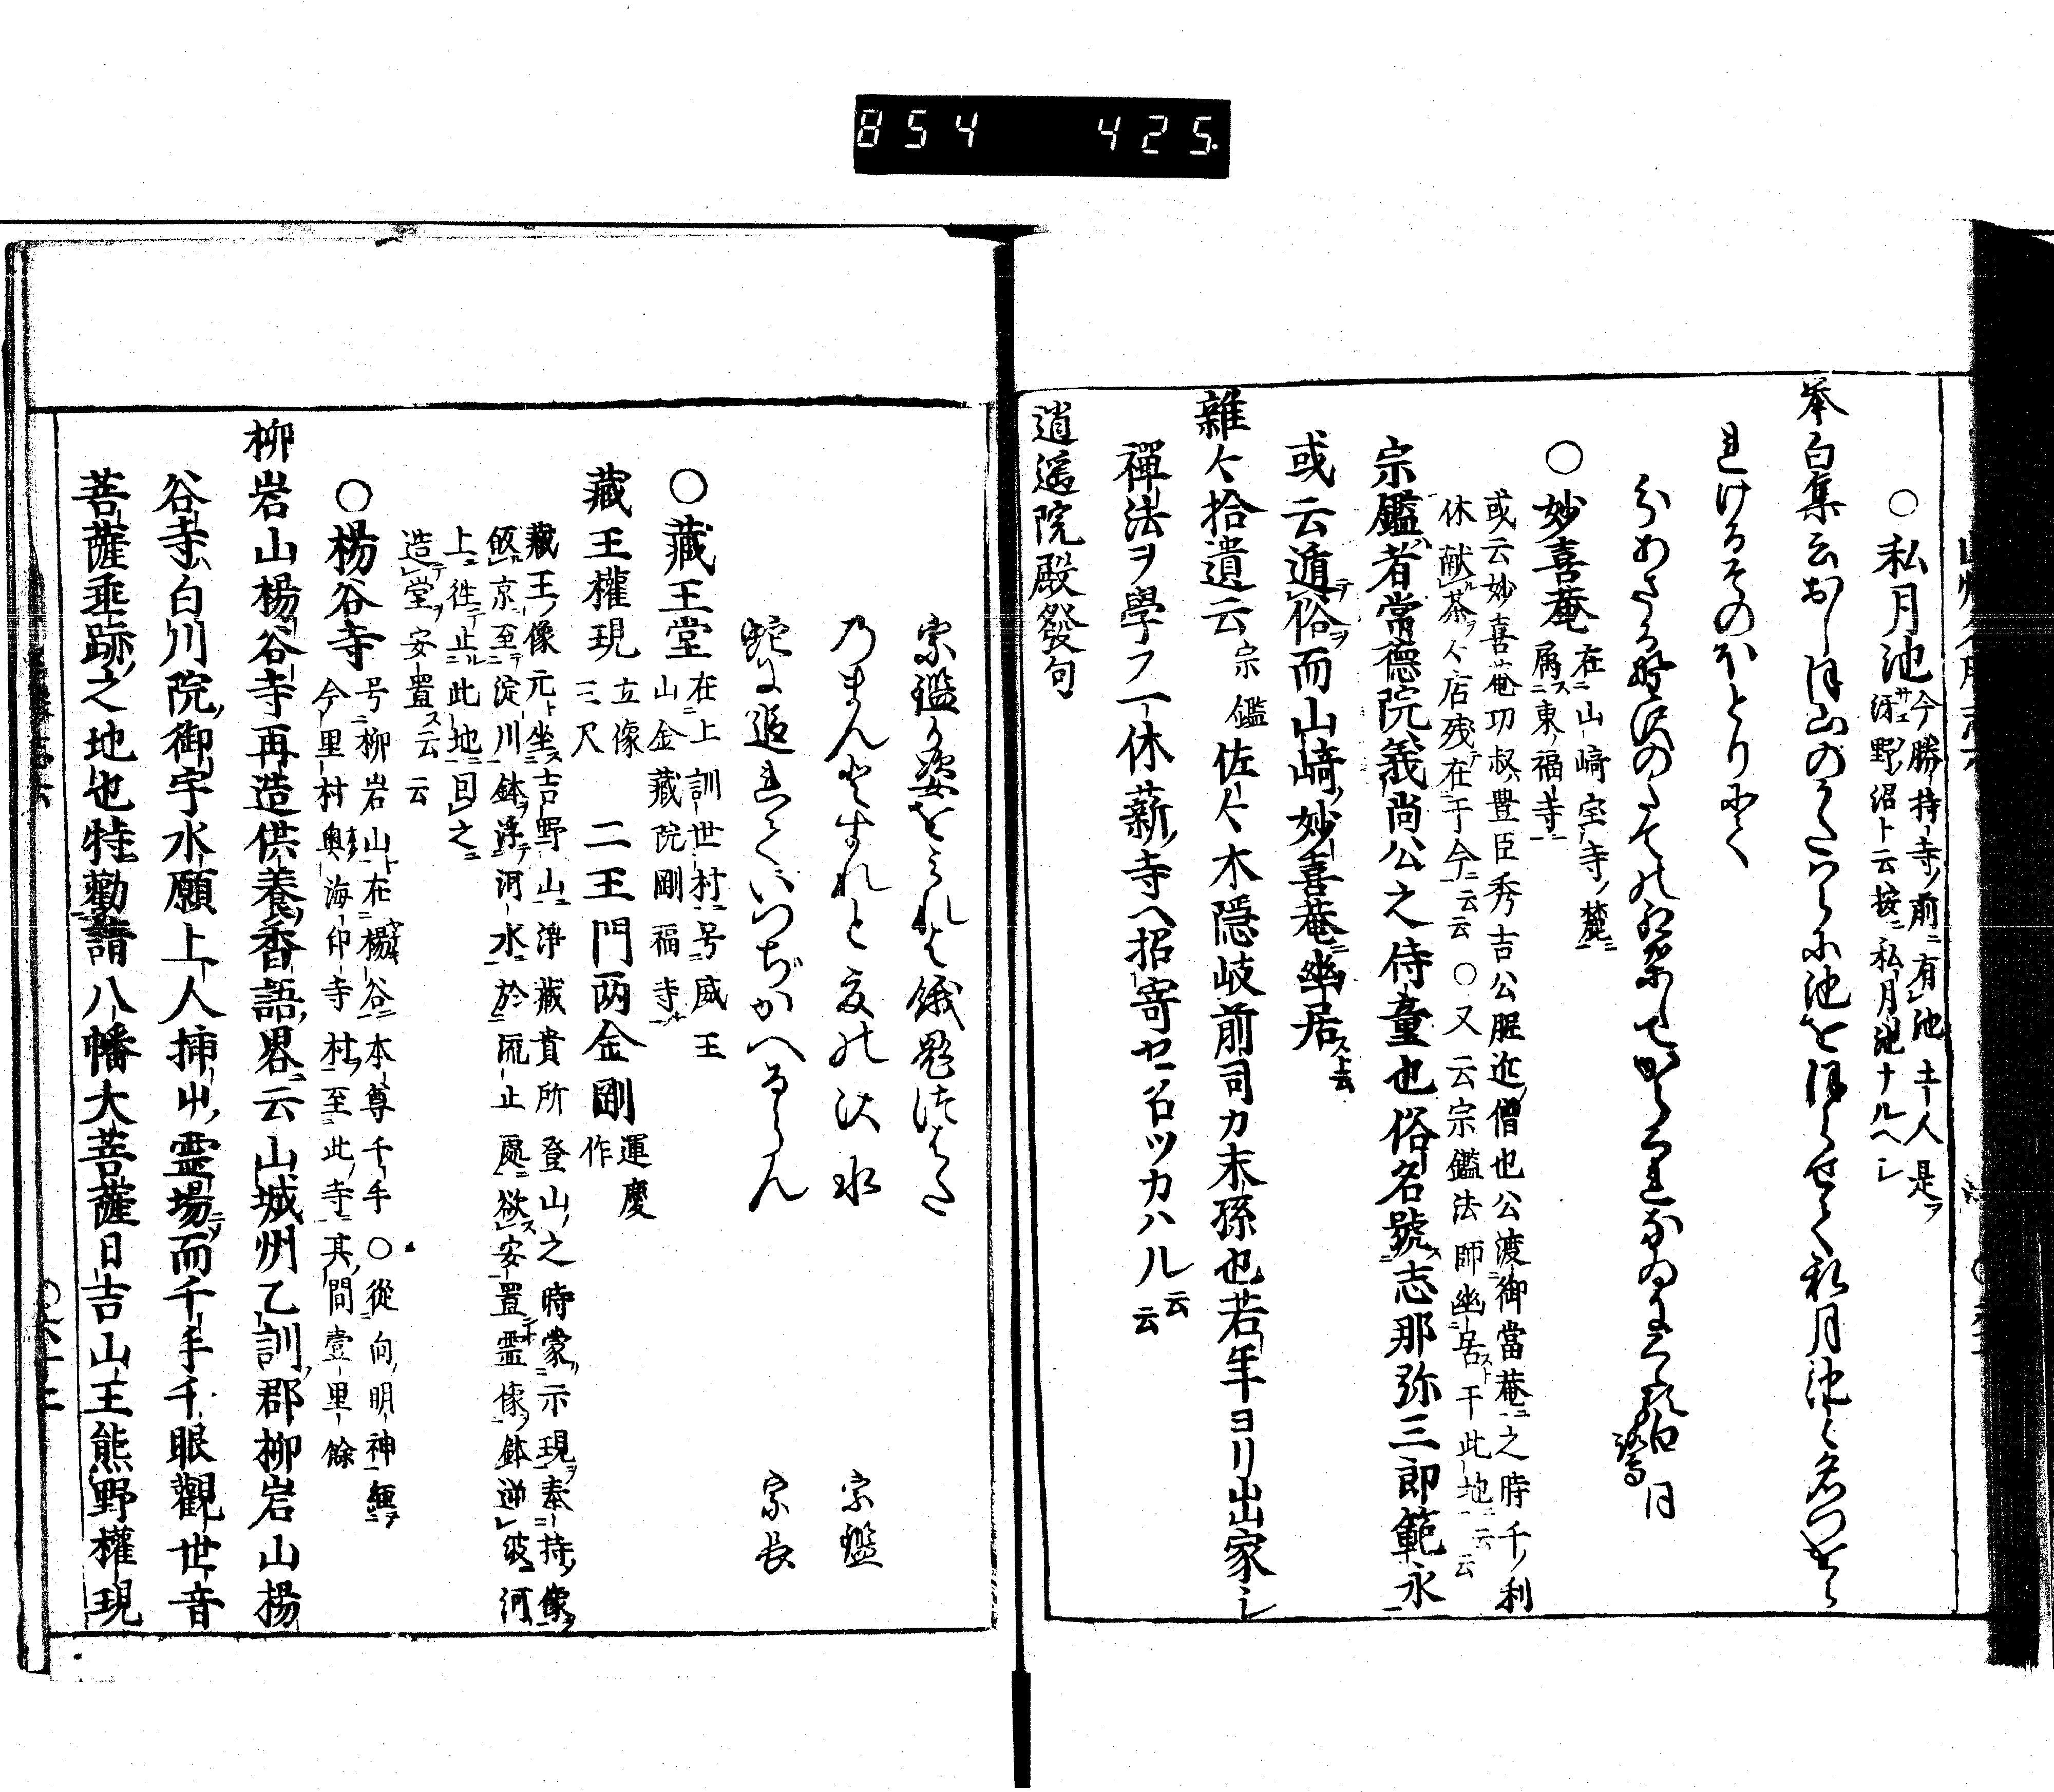 854 425
○私月池 今勝持寺ノ前ニ有池土人是ヲ
冴野ノ沼ト云按ニ私月池ナルヘシ
挙白集云おしほ山のかたはらに池をほらせて私月池と名つけら
れけるそのほとりにて
○妙喜菴 在山崎宝寺ノ麓ニ
属ス東福寺ニ
或云妙喜菴功叔ハ豊臣秀吉公昵近ノ僧也公渡御當菴ニ之時千ノ利
休献ル茶ヲ今店残テ在于今ニ云云 ○又云宗鑑法師幽居ス于此地ニ云云
宗鑑ハ者常徳院義尚公之侍童也俗名號ス志那弥三郎範永
或云遁テ俗ヲ而山崎ノ妙喜菴ニ幽居ス云云
雑々拾遺云宗鑑佐々木隠岐前司カ末孫也若年ヨリ出家シ
禪法ヲ學フ一休薪ノ寺ヘ招寄セ召ツカハル云云
逍遥院殿發句
宗鑑か姿をみれは餓鬼つはた
のまんとすれと夏の沢水 宗鑑
蛇に追れていつちかへるらん 宗長
○藏王堂 在上訓世村ニ号威王
山金藏院剛福寺ト
藏王權現 立像
三尺 二王門両金剛 運慶
作
藏王ノ像元ト坐ス吉野山ニ淨藏貴所登山ノ之時蒙ヲ示現ヲ奉持ノ像ヲ
皈京ニ至テ淀川ニ鉢ヲ浮テ河水ニ於流止處ニ欲ス安置霊像ヲ鉢逆レ波ニ河
上ニ徃テ止ル此地ニ因レ之ニ
造テ堂ヲ安置ス云云
○楊谷寺 号柳岩山ト在楊谷ニ本尊千手 ○從向ノ明神
今里村奥海印寺村ヲ至此ノ寺ニ其間壹里餘
柳岩山楊谷寺再造供養ノ香語畧云山城州乙訓郡柳岩山楊
谷寺ハ白川院ノ御宇水願上人挿ノ霊場而千手千眼觀世音
菩薩垂跡ノ之地也特勸請八幡大菩薩日吉山王熊野權現